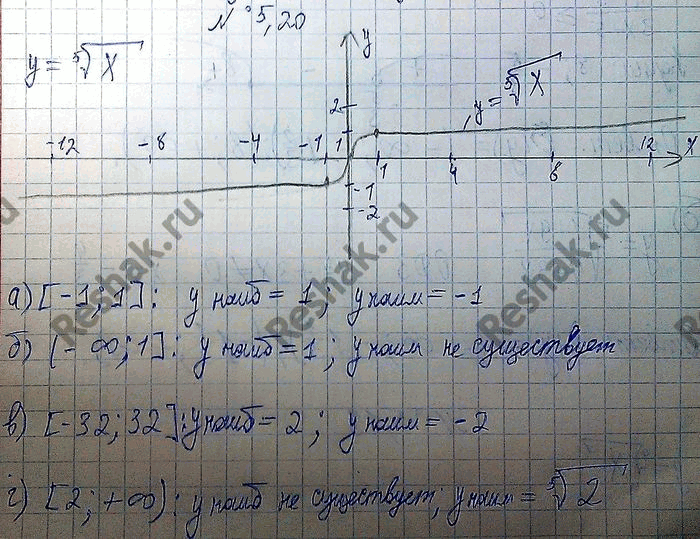 № 5,20
y = ⁵√x
y
y = ⁵√x
2
-12 -8 -4 -1 1 1 4 8 12 x
-1
-2
а) [-1; 1]: y наиб = 1; y наим = -1
б) (-∞; 1]: y наиб = 1; y наим не существует
в) [-32; 32]: y наиб = 2; y наим = -2
г) [2; +∞): y наиб не существует; y наим = ⁵√2
Reshak.ru
Reshak.ru
Reshak.ru